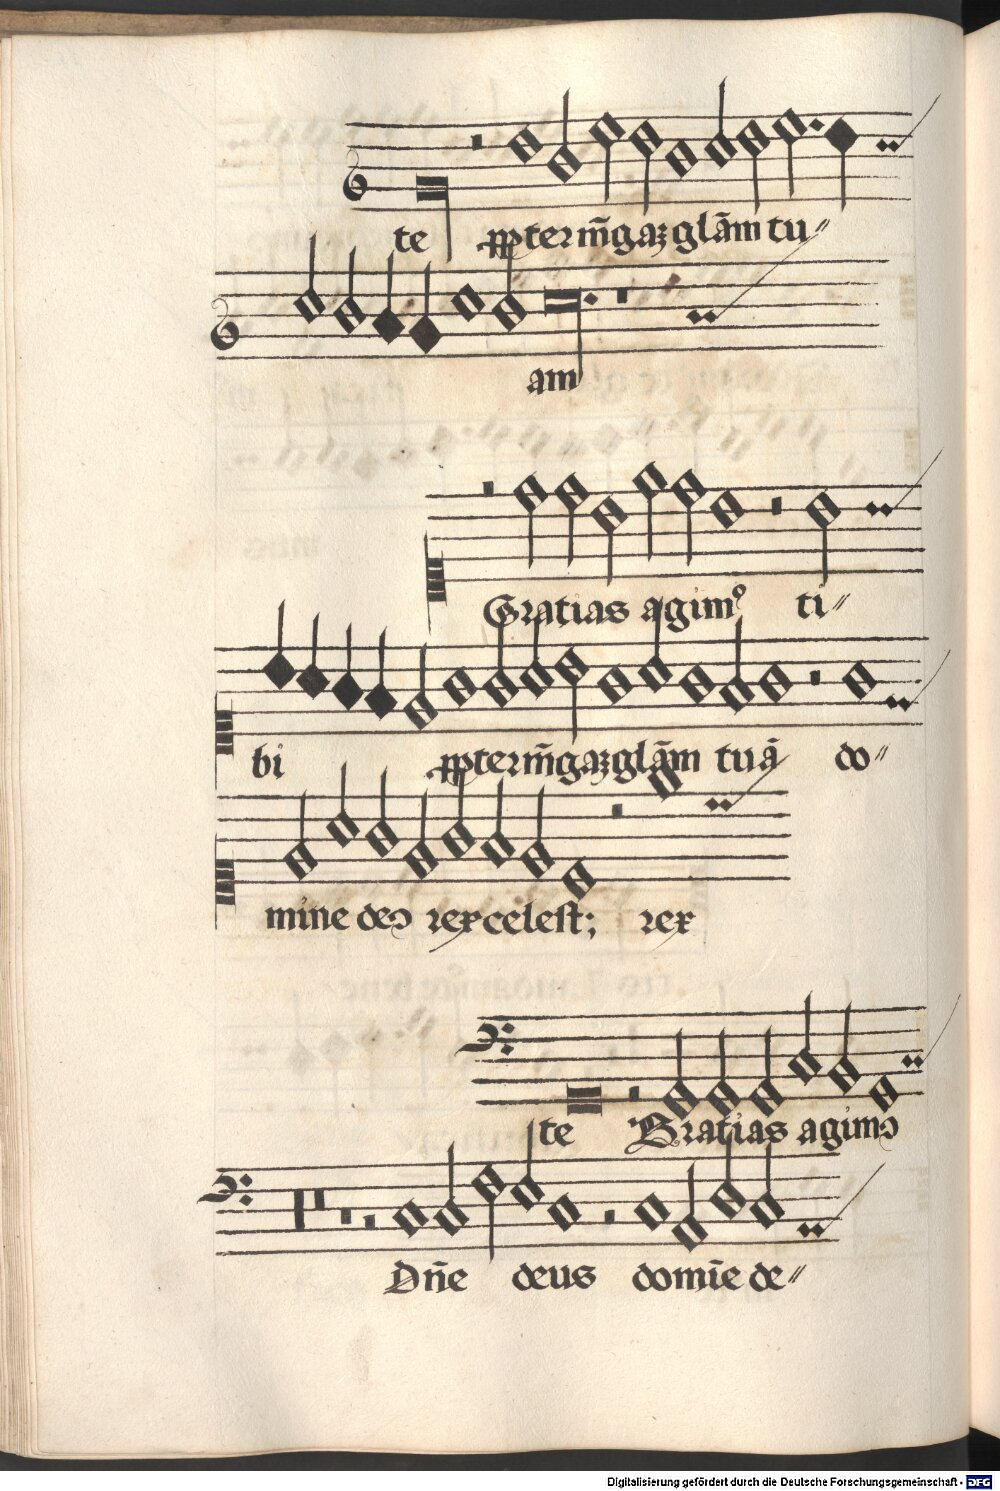 te ꝓpter m̄gaꝫ glām tu〃
am
Gratias agimꝰ ti〃
bi ꝓpter m̄gaꝫ glām tuā do〃
mine deꝰ rex celest; rex
te Gratias agimꝰ
Dn̄e deus domīe de〃
Digitalisierung gefördert durch die Deutsche Forschungsgemeinschaft - DFG